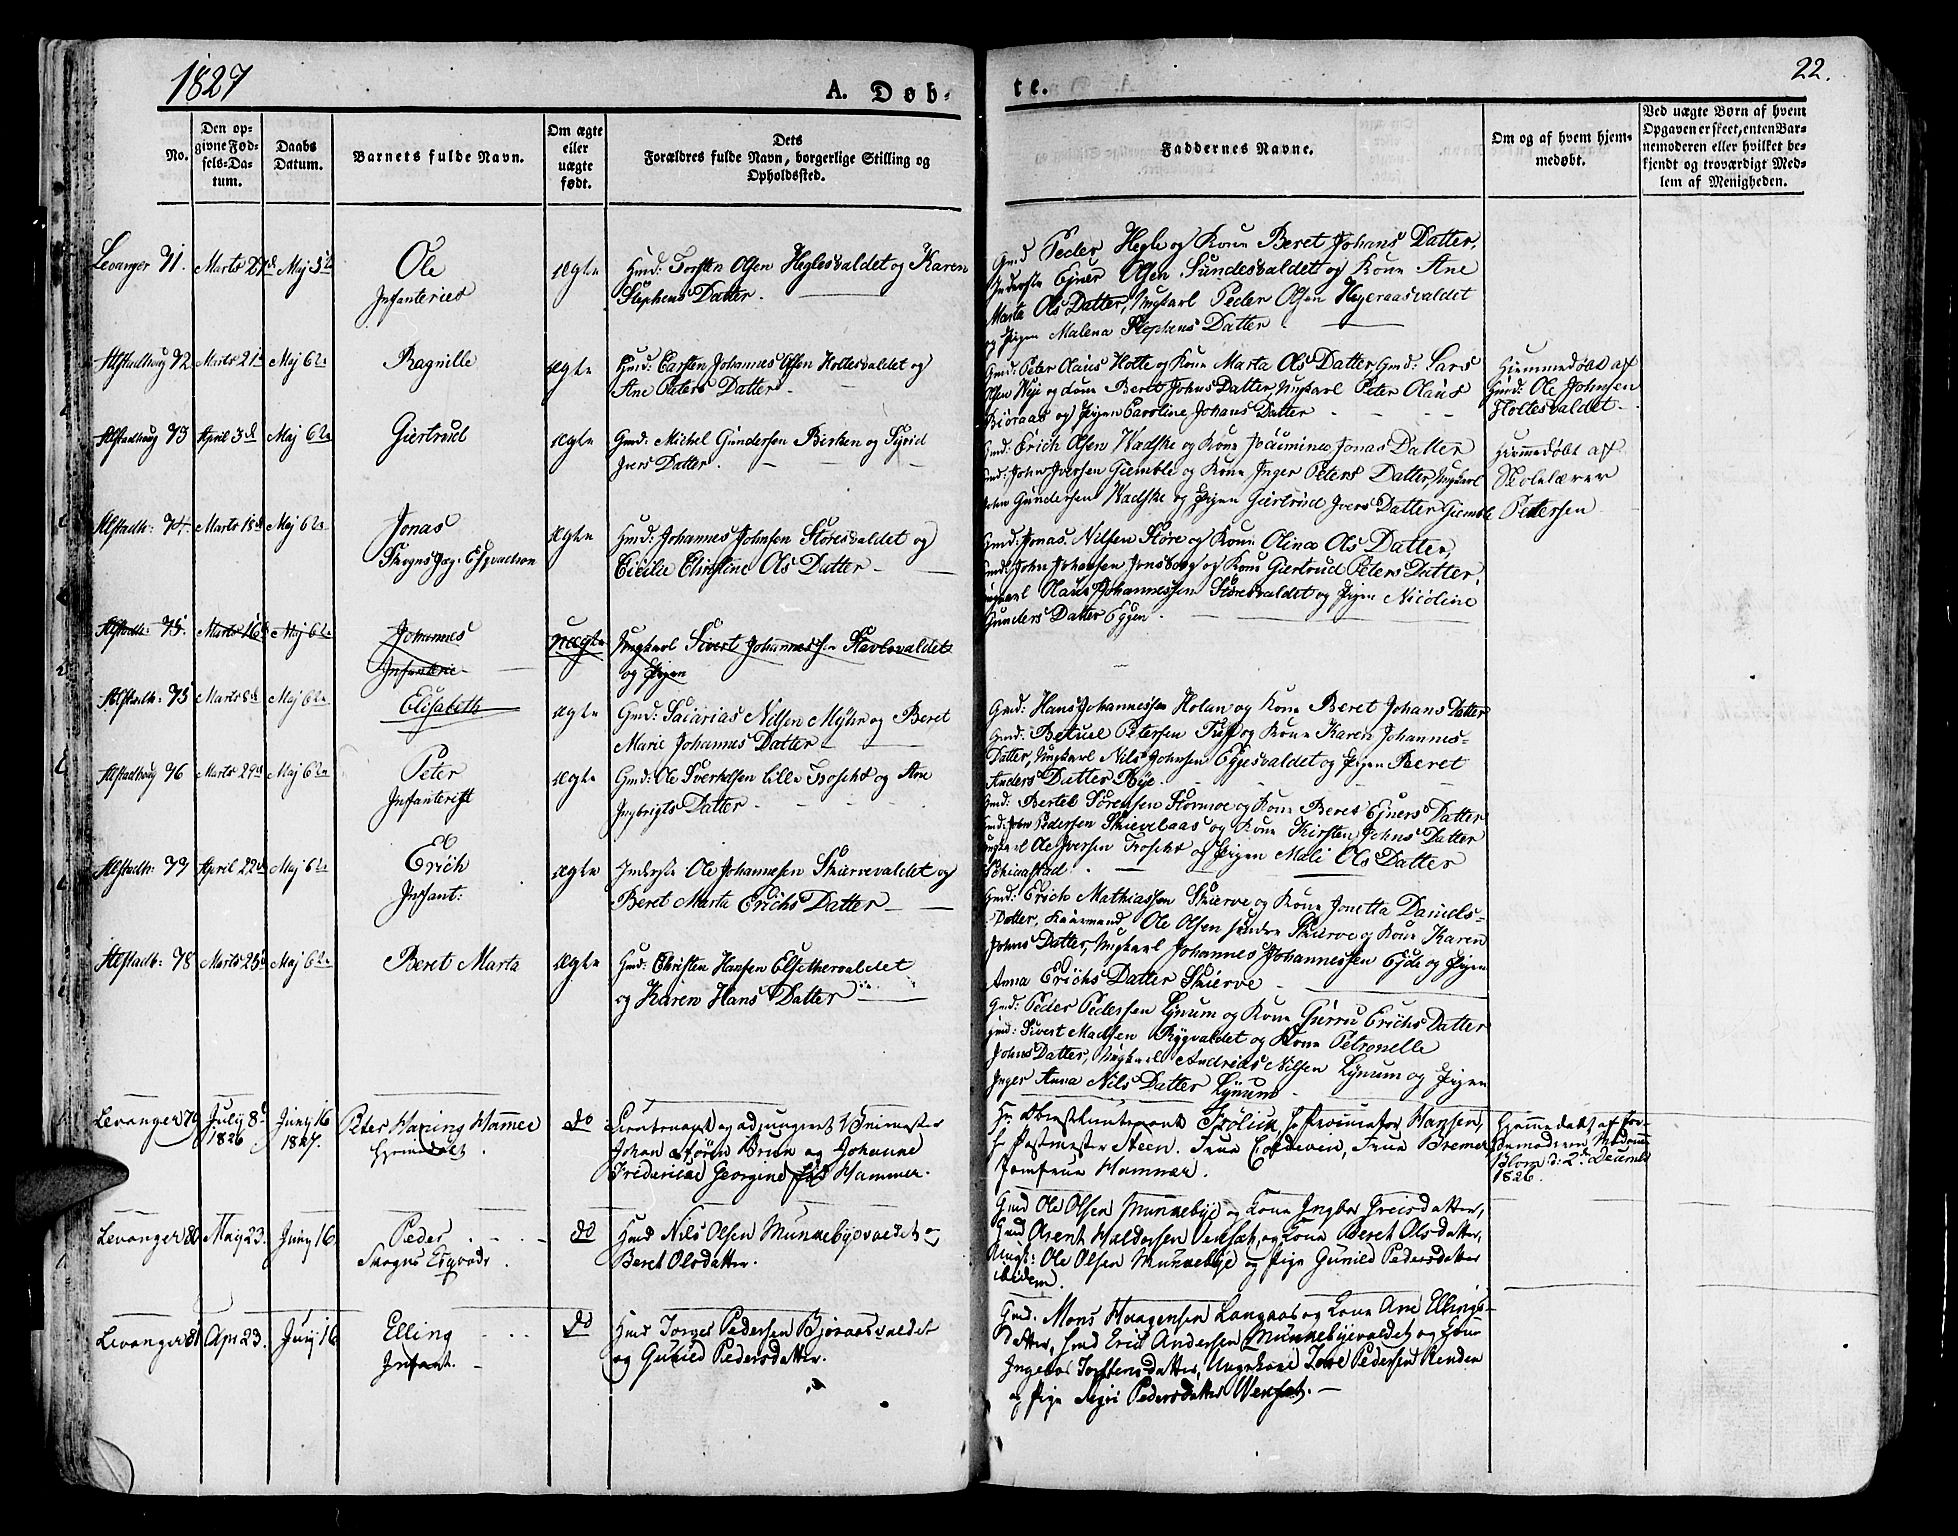 1827
A. Døb-
te.
22.
No.
Den op-
givne Fød-
sels-Da-
tum.
Daabs
Datum.
Barnets fulde Navn.
Om ægte
eller
uægte
født.
Dets
Forældres fulde Navn, borgerlige Stilling og
Opholdssted.
Faddernes Navne.
Om og af hvem hjem-
medøbt.
Ved uægte Børn af hvem
Opgaven er skeet, enten Bar-
nemoderen eller hvilket be-
kjendt og troværdigt Med-
lem af Menigheden.
Levanger 71. Marts 27 Maj 3
Ole
Infanteriet
ægte
Hmd: Torsten Olsen Heglesvaldet og Karen
Stephens Datter.
Gmd Peder Hegle og Kone Beret Johans Datter,
Inderste Ejner Olsen Sundesvaldet og Kone Ane
Marta Ols Datter, Ungkarl Peder Olsen Hegeraasvaldet
og Pigen Malena Stephens Datter
Alstadhoug 72 Marts 21 Maj 6
Ragnille
ægte
Hmd: Carsten Johannes Olsen Holtesvaldet og
Ane Peters Datter
Gmd: Peter Olaus Holte og Kone Marta Ols Datter, Gmd: Lars
Olsen Nye og Kone Beret Johns Datter, Ungkarl Peter Olaus
og Pigen Caroline Johans Datter
Hjemmedøbt af
Hmd: Ole Johnsen
Holtesvaldet
Alstadhoug 73 April 3 Maj 6
Giertrud
ægte
Gmd: Michel Gundersen Birken og Sigrid
Ivers Datter.
Gmd: Erich Olsen Wadske og Kone Jonas Datter
Gmd: John Iversen Giemble og Kone Inger Peters Datter, Ungkarl
John Gundersen Wadske og Pigen Giertrud Ivers Datter Giemble
Hjemmedøbt af
Skolelærer
Pettersen
Alstadh: 74. Marts 18 Maj 6
Jonas
ægte
Hmd: Johannes Johnsen Støresvaldet og
Cicilie Christine Ols Datter
Gmd: Jonas Nilsen Støre og Kone Olina Ols Datter,
Gmd: John Johansen og Kone Giertrud Peters Datter,
Ungkarl Olaus Johannessen Støresvaldet og Pigen Nicoline
Gunders Datter Eggen.
Alstadh: 75. Marts 16 Maj 6
Johannes
Infanterie
uægte
Ungkarl Sivert Johannessen
og Pigen
Alstadh: 75 Marts 8 Maj 6
Elisabeth
ægte
Gmd: Sacarias Nilsen Myhr og Beret
Marie Johannes Datter
Gmd: Hans Johannessen Holan og Kone Beret Johans Datter
Gmd: Betuel Petersen Tuss og Kone Karen Johannes-
Datter, Ungkarl Nils Johnsen Eggesvaldet og Pigen Beret
Anders Datter Rye
Alstadhoug 76 Marts 29 Maj 6
Peter
Infanterist
ægte
Gmd: Ole lille og Ane
Ingbrigts Datter
Gmd: Bertel Sørensen og Kone Beret Ejners Datter
Gmd: John Pedersen og Kone Kirsten Johns Datter
Ungkarl Ole Iversen og Pigen Mali Ols Datter
Alstadh: 77 April 22 Maj 6
Erich
Infant:
ægte
Inderste Ole Johannesen Skiervevaldet og
Beret Marta Erichs Datter
Gmd: Erich Mathiassen Skierve og Kone Jonetta Daniels-
Datter, Kaarmand Ole Olsen Skierve og Kone Karen
Johns Datter, Ungkarl Johannes Johannessen Eyde og Pigen
Anna Erichs Datter Skierve
Alstadh: 78 Marts 25 Maj 6
Beret Marta
ægte
Hmd: Christen Hansen Elsethervaldet
og Karen Hans Datter
Gmd: Peder Pedersen Lynum og Kone Gurru Erichs Datter
Hmd: Sivert Madsen Rygvaldet og Kone Petronelle
Johns Datter, Ungkarl Andreas Nilsen Lynum og Pigen
Inger Anna Nils Datter Lynum
Levanger 79 July 8
1826
Juny 16
1827.
Peter Haning Hammer
Hjemdøbt.
do
Lieutenant og adjungeret Veimester
Johan Støren Brun og Johanne
Fredericae Georgine Hammer.
Hr. Oberstlieutenant Frølich, Hr Procurator Hansen,
Hr Postmester Steen. Frue, Frue Bremer
Jomfrue Hammer.
Hjemmedøbt af Jor-
demoderen Madame
Blom d: 2 Decemb
1826.
Levanger 80 May 23. Juny 16.
Peder
Skogns Esqvadr.
do
Hmd Nils Olsen Munkebyevaldet og
Beret Olsdatter.
Gmd Ole Olsen Munkebye og Kone Ingbor Greisdatter,
Gmd Arent Haldorsen og Kone Beret Olsdatter,
Ungk: Ole Olsen Munkebye og Pige Gunild Pedersdatter
ibidem.
Levanger 81 Apr 23. Juny 16
Elling
Infant.
do
Hmd Torger Pedersen Bjøraasvaldet
og Gunild Pedersdatter.
Gmd. Mons Haagensen Langaas og Kone Ane Ellings-
datter, Hmd Eric Andersen Munkebyevaldet og Kone
Ingebor Torstensdatter, Ungekarl Tore Pedersen
og Pige Pedersdatter